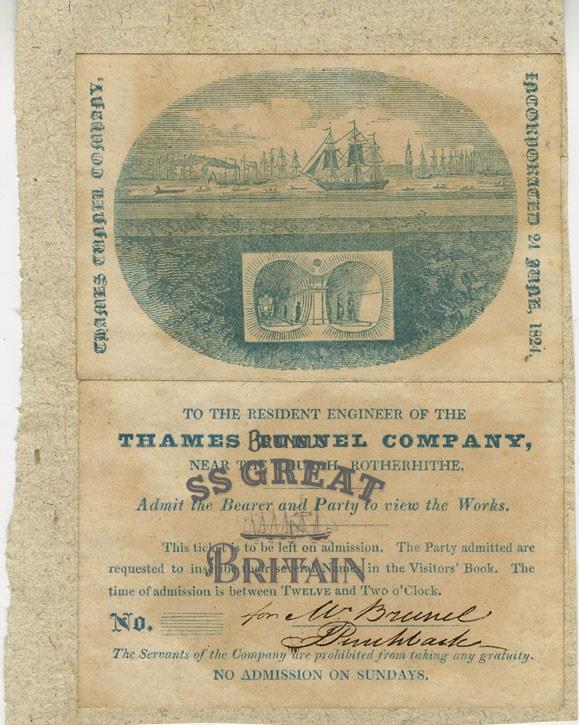 THAMES TUNNEL COMPANY,
INCORPORATED 24 JUNE, 1824,
TO THE RESIDENT ENGINEER OF THE
THAMES TUNNEL COMPANY,
NEAR THE CHURCH, ROTHERHITHE.
Admit the Bearer and Party to view the Works.
This ticket is to be left on admission. The Party admitted are
requested to inscribe their several Names in the Visitors' Book. The
time of admission is between TWELVE and TWO o'Clock.
No. for Mr Brunel
The Servants of the Company are prohibited from taking any gratuity.
NO ADMISSION ON SUNDAYS.
BRUNEL'S
SS GREAT
BRITAIN